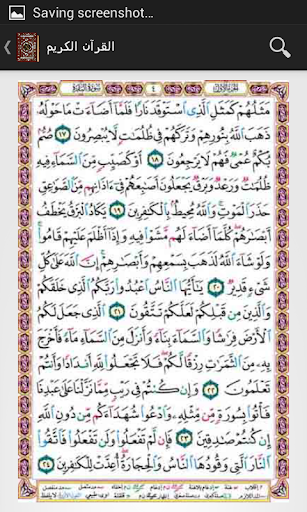 Saving screenshot...
القرآن الكريم
سُورَةُ البَقَرَة ٤ الجزء الاول
مَثَلُهُمْ كَمَثَلِ الَّذِى اسْتَوْقَدَ نَارًا فَلَمَّا أَضَاءَتْ مَا حَوْلَهُ
ذَهَبَ اللَّهُ بِنُورِهِمْ وَتَرَكَهُمْ فِى ظُلُمَٰتٍ لَّا يُبْصِرُونَ ١٧ صُمٌّ
بُكْمٌ عُمْىٌ فَهُمْ لَا يَرْجِعُونَ ١٨ أَوْ كَصَيِّبٍ مِّنَ السَّمَاءِ فِيهِ
ظُلُمَٰتٌ وَرَعْدٌ وَبَرْقٌ يَجْعَلُونَ أَصَٰبِعَهُمْ فِى ءَاذَانِهِم مِّنَ الصَّوَٰعِقِ
حَذَرَ الْمَوْتِ وَاللَّهُ مُحِيطٌ بِالْكَٰفِرِينَ ١٩ يَكَادُ الْبَرْقُ يَخْطَفُ
أَبْصَٰرَهُمْ كُلَّمَا أَضَاءَ لَهُم مَّشَوْا فِيهِ وَإِذَا أَظْلَمَ عَلَيْهِمْ قَامُوا
وَلَوْ شَاءَ اللَّهُ لَذَهَبَ بِسَمْعِهِمْ وَأَبْصَٰرِهِمْ إِنَّ اللَّهَ عَلَىٰ كُلِّ
شَىْءٍ قَدِيرٌ ٢٠ يَٰأَيُّهَا النَّاسُ اعْبُدُوا رَبَّكُمُ الَّذِى خَلَقَكُمْ
وَالَّذِينَ مِن قَبْلِكُمْ لَعَلَّكُمْ تَتَّقُونَ ٢١ الَّذِى جَعَلَ لَكُمُ
الْأَرْضَ فِرَٰشًا وَالسَّمَاءَ بِنَاءً وَأَنزَلَ مِنَ السَّمَاءِ مَاءً فَأَخْرَجَ
بِهِ مِنَ الثَّمَرَٰتِ رِزْقًا لَّكُمْ فَلَا تَجْعَلُوا لِلَّهِ أَندَادًا وَأَنتُمْ
تَعْلَمُونَ ٢٢ وَإِن كُنتُمْ فِى رَيْبٍ مِّمَّا نَزَّلْنَا عَلَىٰ عَبْدِنَا
فَأْتُوا بِسُورَةٍ مِّن مِّثْلِهِ وَادْعُوا شُهَدَاءَكُم مِّن دُونِ اللَّهِ
إِن كُنتُمْ صَٰدِقِينَ ٢٣ فَإِن لَّمْ تَفْعَلُوا وَلَن تَفْعَلُوا فَاتَّقُوا
النَّارَ الَّتِى وَقُودُهَا النَّاسُ وَالْحِجَارَةُ أُعِدَّتْ لِلْكَٰفِرِينَ ٢٤